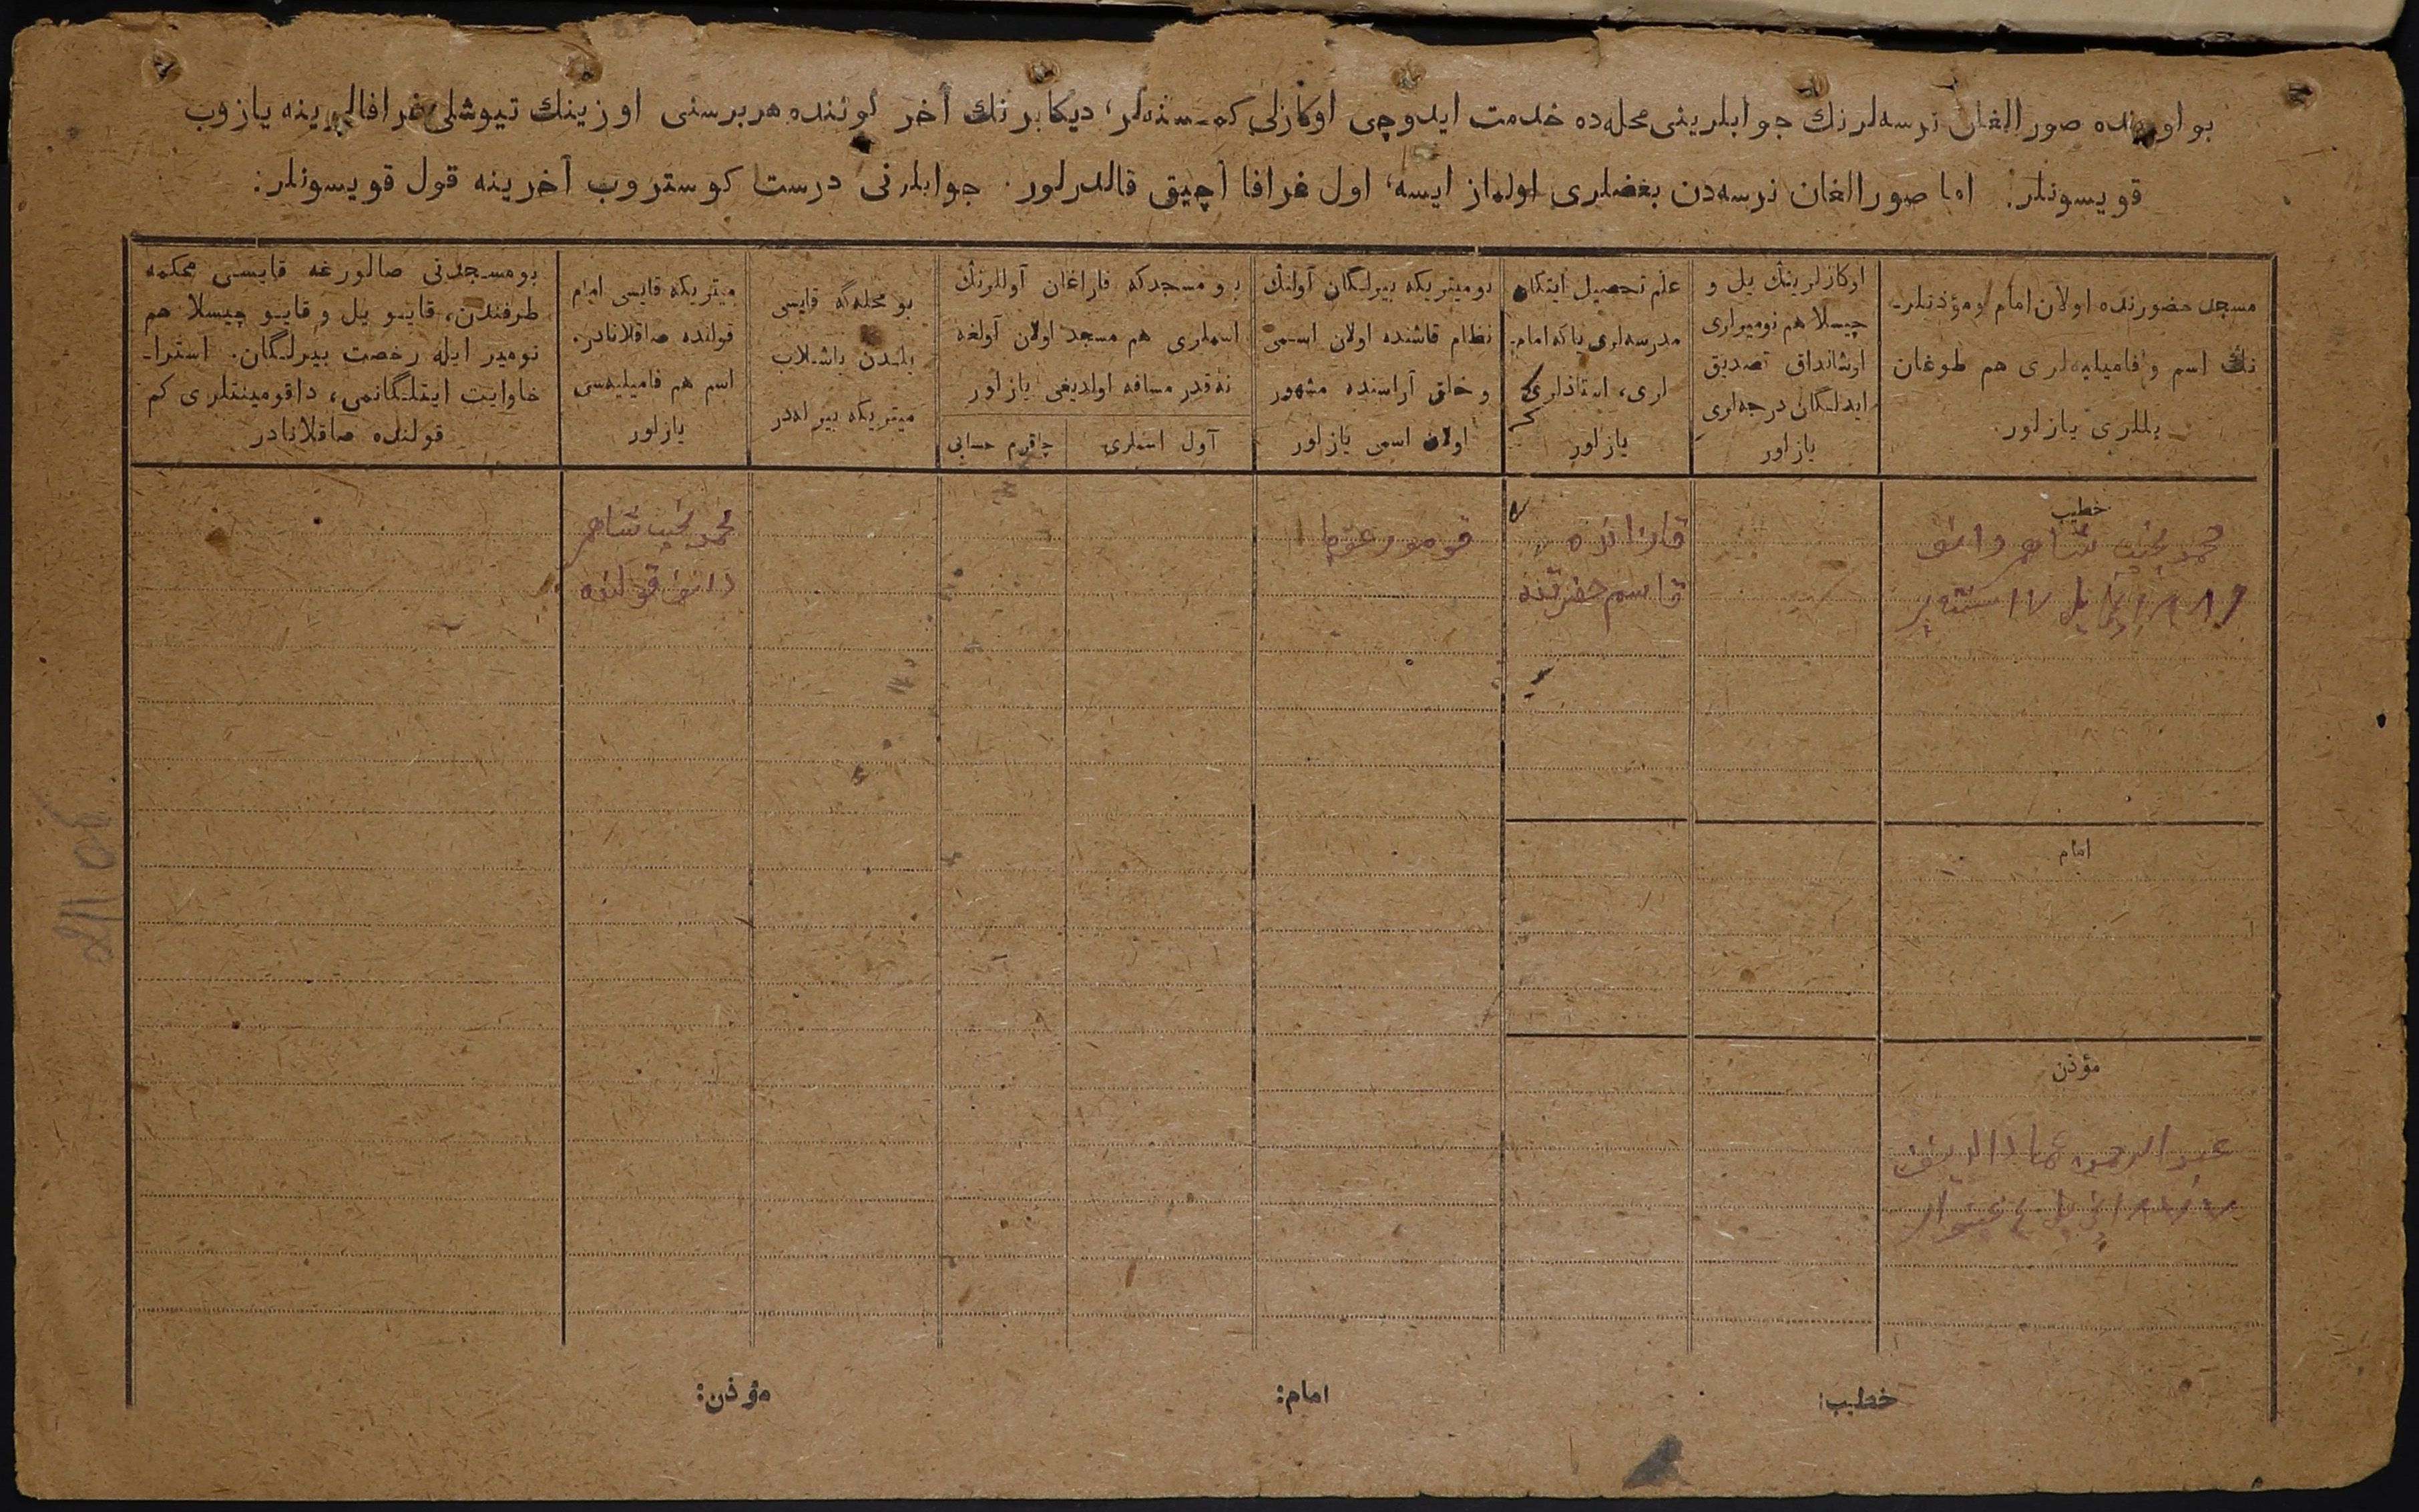 بو اورنده صورالغان نرسه‌لرنڭ جوابلرینی محله‌ده خدمت ایدوچی اوکازلی کمسنه‌لر، دیکابرنڭ آخر کوننده هر برسنی اوزینڭ تیوشلی غرافالرینه یازوب
قویسونلر. اما صورالغان نرسه‌دن بعضلری اولماز ایسه، اول غرافا آچیق قالدرلور. جوابلرنی درست کوستروب آخرینه قول قویسونلر:
مسجد حضورنده اولان امام و مؤذنلر-
نڭ اسم و فامیلیه‌لری هم طوغان
یللری یازلور.
اوکازلرینڭ یل و
چیسلا هم نومیرلری
اوشانداق تصدیق
ایدلگان درجه‌لری
یازلور
علم تحصیل ایتکان
مدرسه‌لری یاکه امام-
لری، استاذلری
یازلور
بو میتریکه بیرلگان آولنڭ
نظام قاشنده اولان اسمی
و خلق آراسنده مشهور
اولان اسمی یازلور
بو مسجدکه قاراغان آوللرنڭ
اسملری هم مسجد اولان آولغه
نه قدر مسافه اولدیغی یازلور
آول اسملری
چاقرم حسابی
بو محله‌گه قایسی
یلدن باشلاب
میتریکه بیرله‌در
میتریکه قایسی امام
قولنده صاقلانادر.
اسم هم فامیلیه‌سی
یازلور
بو مسجدنی صالورغه قایسی محکمه
طرفندن، قایو یل و قایو چیسلا هم
نومیر ایله رخصت بیرلگان. استرا-
خاوایت ایتلگانمی، داقومینتلری کم
قولنده صاقلانادر
خطیب
محمد نجیب شاهمردانف
قازانده
قاسم حضرتده
محمد نجیب شاهمر
دانف قولنده
امام
مؤذن
عبدالرحمن عمادالدینف
خطیب:
امام:
مؤذن: